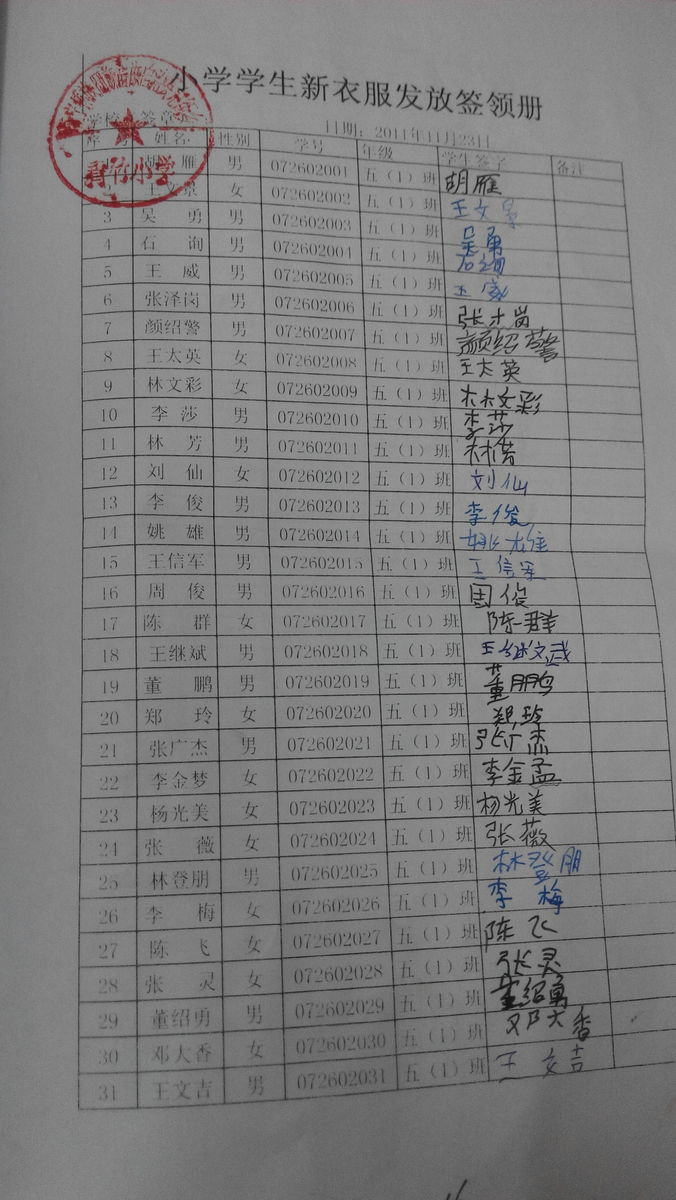 小学学生新衣服发放签领册
学校 签章 日期：2011年11月23日
青竹小学
姓名 性别 学号 年级 学生签字 备注
胡雁 男 072602001 五（1）班 胡雁
2 王文景 女 072602002 五（1）班 王文景
3 吴勇 男 072602003 五（1）班 吴勇
4 石询 男 072602004 五（1）班 石询
5 王威 男 072602005 五（1）班 王威
6 张泽岗 男 072602006 五（1）班 张才岗
7 颜绍警 男 072602007 五（1）班 颜绍警
8 王太英 女 072602008 五（1）班 王太英
9 林文彩 女 072602009 五（1）班 林文彩
10 李莎 男 072602010 五（1）班 李莎
11 林芳 男 072602011 五（1）班 林芳
12 刘仙 女 072602012 五（1）班 刘仙
13 李俊 男 072602013 五（1）班 李俊
14 姚雄 男 072602014 五（1）班 姚雄
15 王信军 男 072602015 五（1）班 王信军
16 周俊 男 072602016 五（1）班 周俊
17 陈群 女 072602017 五（1）班 陈群
18 王继斌 男 072602018 五（1）班 王继斌
19 董鹏 男 072602019 五（1）班 董鹏
20 郑玲 女 072602020 五（1）班 郑玲
21 张广杰 男 072602021 五（1）班 张广杰
22 李金梦 女 072602022 五（1）班 李金孟
23 杨光美 女 072602023 五（1）班 杨光美
24 张薇 女 072602024 五（1）班 张薇
25 林登朋 男 072602025 五（1）班 林登朋
26 李梅 女 072602026 五（1）班 李梅
27 陈飞 女 072602027 五（1）班 陈飞
28 张灵 女 072602028 五（1）班 张灵
29 董绍勇 男 072602029 五（1）班 董绍勇
30 邓大香 女 072602030 五（1）班 邓大香
31 王文吉 男 072602031 五（1）班 王文吉